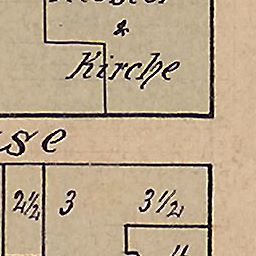 &
Kirche
se
2½ 3 3½